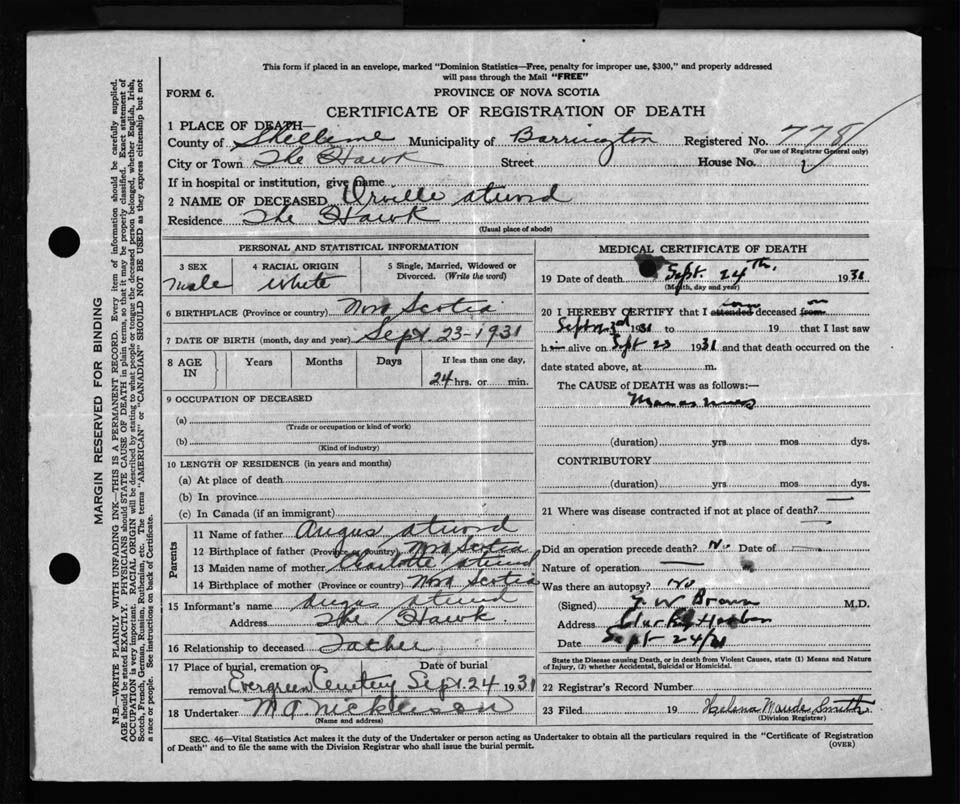 This form if placed in an envelope, marked "Dominion Statistics—Free, penalty for improper use, $300," and properly addressed
will pass through the Mail "FREE"
FORM 6.
PROVINCE OF NOVA SCOTIA
CERTIFICATE OF REGISTRATION OF DEATH
1 PLACE OF DEATH—
County of Shelburne Municipality of Barrington Registered No. 778
(For use of Registrar General only)
City or Town The Hawk Street House No.
If in hospital or institution, give name
2 NAME OF DECEASED Orville Atwood
Residence The Hawk
(Usual place of abode)
PERSONAL AND STATISTICAL INFORMATION
3 SEX 4 RACIAL ORIGIN 5 Single, Married, Widowed or
Divorced. (Write the word)
Male White
6 BIRTHPLACE (Province or country) Nova Scotia
7 DATE OF BIRTH (month, day and year) Sept. 23-1931
8 AGE IN Years Months Days If less than one day,
24 hrs. or min.
9 OCCUPATION OF DECEASED
(a)
(Trade or occupation or kind of work)
(b)
(Kind of industry)
10 LENGTH OF RESIDENCE (in years and months)
(a) At place of death
(b) In province
(c) In Canada (if an immigrant)
Parents
11 Name of father Angus Atwood
12 Birthplace of father (Province or country) Nova Scotia
13 Maiden name of mother Charlotte Atwood
14 Birthplace of mother (Province or country) Nova Scotia
15 Informant's name Angus Atwood
Address The Hawk.
16 Relationship to deceased Father
17 Place of burial, cremation or Date of burial
removal Evergreen Cemetery Sept. 24 1931
18 Undertaker M A Nickerson
(Name and address)
MEDICAL CERTIFICATE OF DEATH
19 Date of death Sept. 24th, 1931
(Month, day and year)
20 I HEREBY CERTIFY that I attended deceased from on
Sept 23rd 1931 to 19 that I last saw
him alive on Sept 23 1931 and that death occurred on the
date stated above, at m.
The CAUSE of DEATH was as follows:—
(duration) yrs mos dys.
CONTRIBUTORY
(duration) yrs mos dys.
21 Where was disease contracted if not at place of death?
Did an operation precede death? No Date of
Nature of operation
Was there an autopsy? No
(Signed) Brown M.D.
Address Clarks Harbor
Date Sept 24/31
State the Disease causing Death, or in death from Violent Causes, state (1) Means and Nature
of Injury, (2) whether Accidental, Suicidal or Homicidal.
22 Registrar's Record Number
23 Filed 19 Helena Maude Smith
(Division Registrar)
SEC. 46—Vital Statistics Act makes it the duty of the Undertaker or person acting as Undertaker to obtain all the particulars required in the "Certificate of Registration
of Death" and to file the same with the Division Registrar who shall issue the burial permit.
(OVER)
MARGIN RESERVED FOR BINDING
N.B.—WRITE PLAINLY WITH UNFADING INK—THIS IS A PERMANENT RECORD. Every item of information should be carefully supplied.
AGE should be stated EXACTLY. PHYSICIANS should STATE CAUSE OF DEATH in plain terms, so that it may be properly classified. Exact statement of
OCCUPATION is very important. RACIAL ORIGIN will be described by stating to what people or tongue the deceased person belonged, whether English, Irish,
Scotch, French, German, Russian, Ruthenian, etc. The terms "AMERICAN" or "CANADIAN" SHOULD NOT BE USED as they express citizenship but not
a race or people. See instructions on back of Certificate.